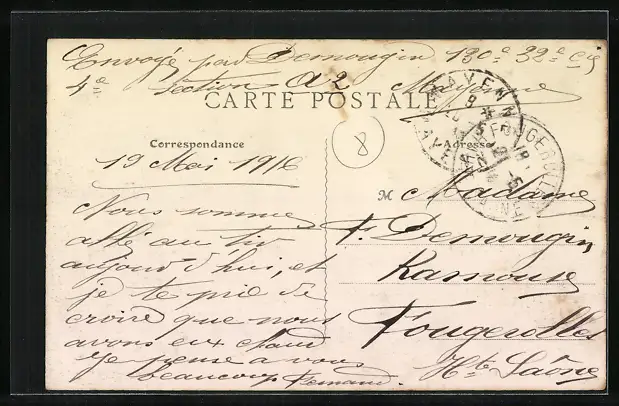 Envoyé par Demougin 130e 32e Cie
4e Section A2 Mayenne
CARTE POSTALE
Correspondance
Adresse
8
19 Mai 1916
Nous sommes
allé au tir
aujourd'hui, et
je te prie de
croire que nous
avons eux chaud
Je pense a vous
beaucoup Fernand.
M Madame
F. Demougin
Ramouse
Fougerolles
Hte Saône
MAYENNE